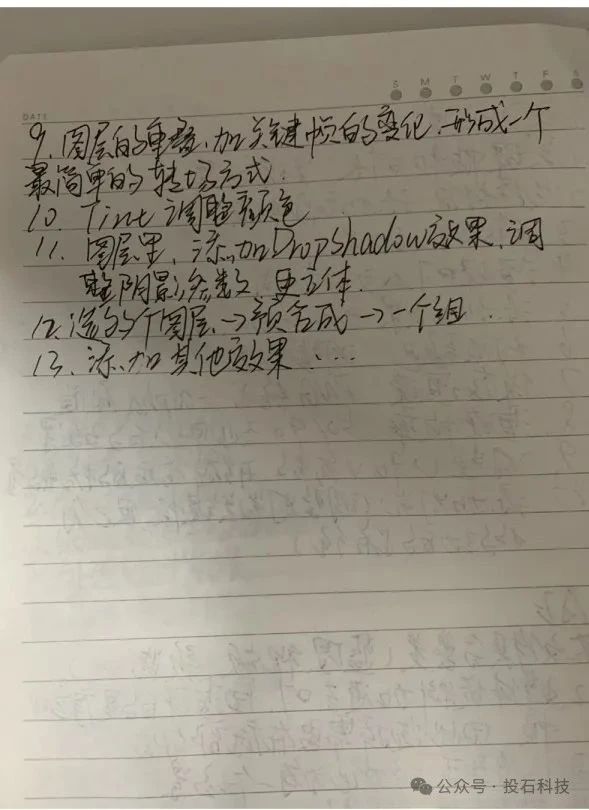 DATE
S M T W T F S
9、图层的重叠、加关键帧的变化、形成一个
最简单的转场方式.
10、Tint 调整颜色
11、图层里、添加DropShadow效果、调
整阴影参数、更立体.
12、选多个图层→预合成→一个组.
13、添加其他效果....
公众号·投石科技